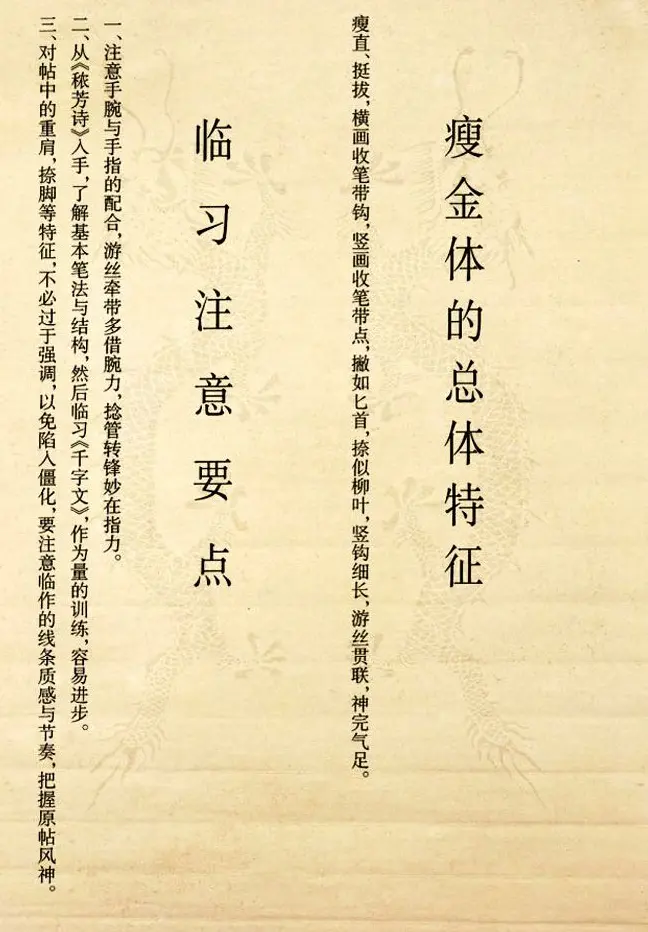 瘦金体的总体特征
瘦直、挺拔，横画收笔带钩，竖画收笔带点，撇如匕首，捺似柳叶，竖钩细长，游丝贯联，神完气足。
临习注意要点
一、注意手腕与手指的配合，游丝牵带多借腕力，捻管转锋妙在指力。
二、从《秾芳诗》入手，了解基本笔法与结构，然后临习《千字文》，作为量的训练，容易进步。
三、对帖中的重肩，捺脚等特征，不必过于强调，以免陷入僵化，要注意临作的线条质感与节奏，把握原帖风神。